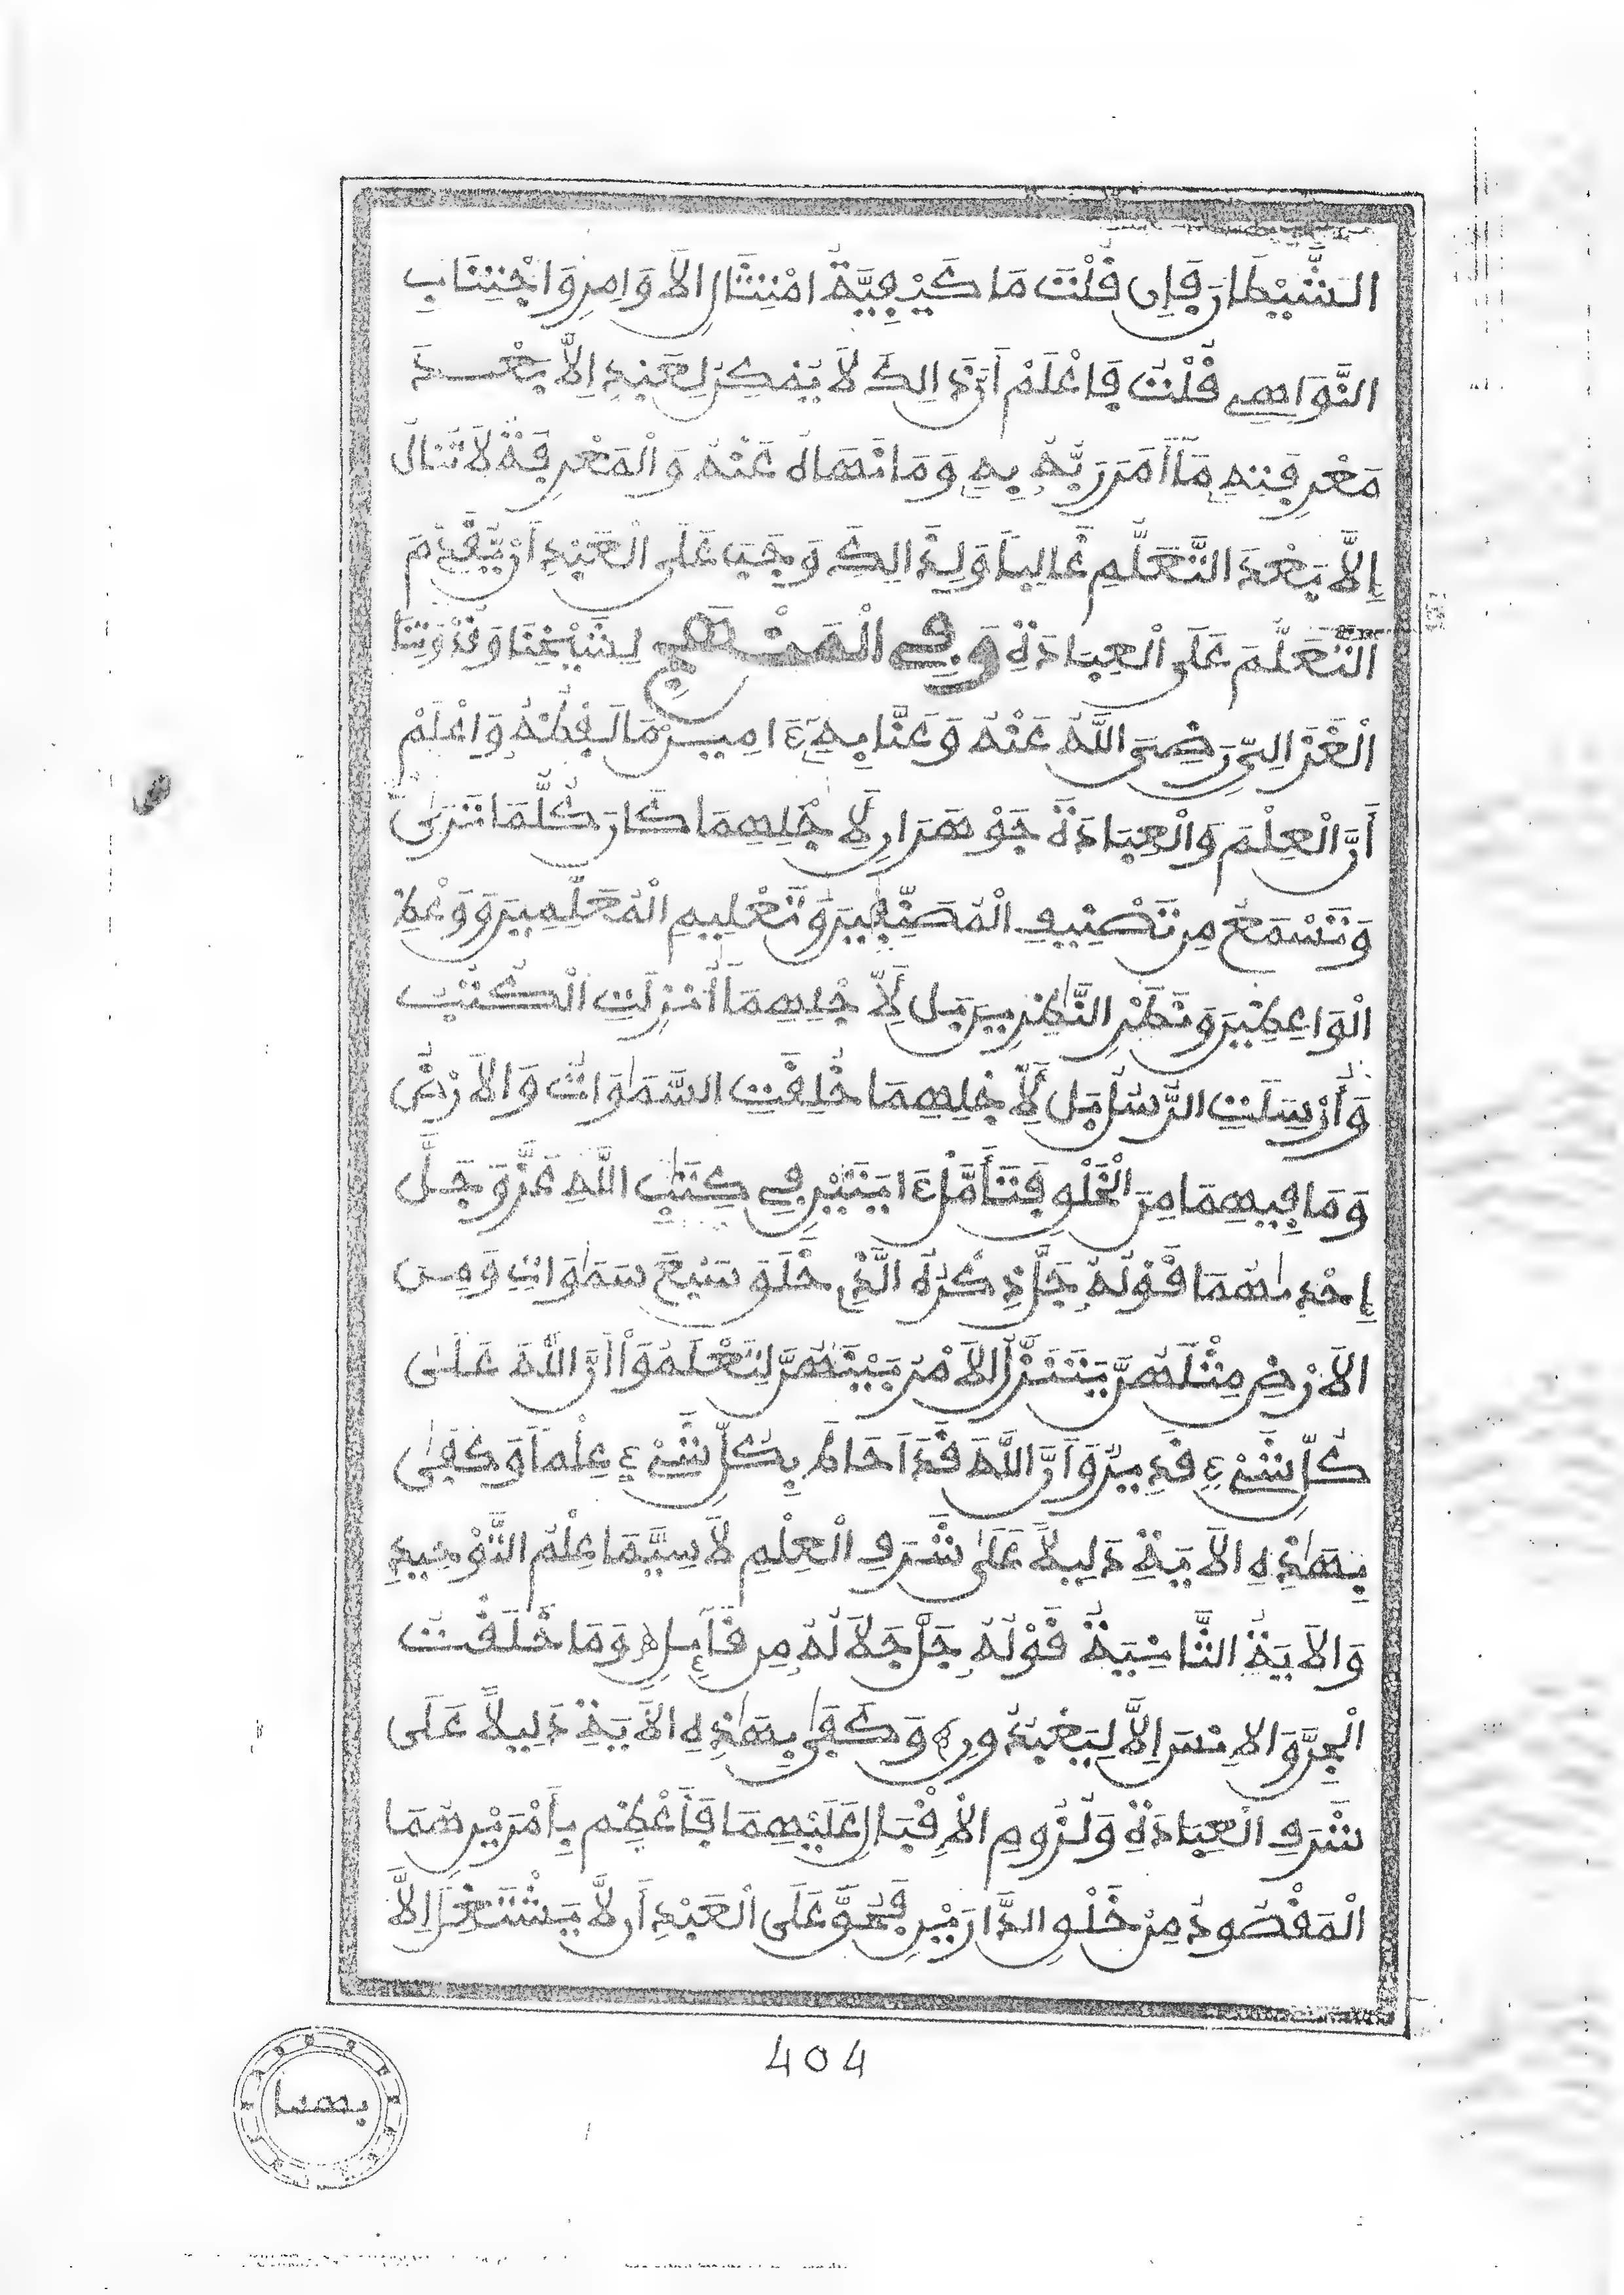 الشَّيْطَانِ فَإِن قُلْتَ مَا كَيْفِيَّةُ امْتِثَالِ الَاوَامِرِ وَاجْتِنَابِ
النَّوَاهِي قُلْتُ فَاعْلَمْ أَنَّ ذَالِكَ لَا يُمْكِنُ لِعَبْدٍ اِلَّا بَعْدَ
مَعْرِفَتِهِ مَآ أَمَرَ رَبُّهُ بِهِ وَمَا نَهَاهُ عَنْهُ وَالْمَعْرِفَةُ لَا تُنَالُ
إِلَّا بَعْدَ التَّعَلُّمِ غَالِبًا وَلِذَالِكَ وَجَبَ عَلَى الْعَبْدِ أَنْ يُّقَدِّمَ
التَّعَلُّمَ عَلَى الْعِبَادَةِ وَفِي الْمَنْهَجِ لِشَيْخِنَا وَقُدْوَتِنَا
الْغَزَالِيِّ رَضِيَ اللَّهُ عَنْهُ وَعَنَّا بِهِ ءَامِينَ مَا لَفْظُهُ وَاعْلَمْ
أَنَّ الْعِلْمَ وَالْعِبَادَةَ جَوْهَرَانِ لِأَجْلِهِمَا كَانَ كُلُّمَا تَرَىٰ
وَتَسْمَعُ مِن تَصْنِيفِ الْمُصَنِّفِينَ وَتَعْلِيمِ الْمُعَلِّمِينَ وَوَعْظِ
الْوَاعِظِينَ وَنَظَرِ النَّاظِرِينَ بَل لِأَجْلِهِمَآ أُنْزِلَتِ الْكُتُبُ
وَأُرْسِلَتِ الرُّسُلُ بَل لِأَجْلِهِمَا خُلِقَتِ السَّمَٰوَاتُ وَالَارْضُ
وَمَا فِيهِمَا مِنَ الْخَلْقِ فَتَأَمَّلْ ءَايَتَيْنِ فِي كِتَٰبِ اللَّهِ عَزَّ وَجَلَّ
إِحْدِىٰهُمَا قَوْلُهُ جَلَّ ذِكْرُهُ الَّذِي خَلَقَ سَبْعَ سَمَٰوَاتٍ وَمِنَ
الَارْضِ مِثْلَهُنَّ يَتَنَزَّلُ الَامْرُ بَيْنَهُنَّ لِتَعْلَمُوٓاْ أَنَّ اللَّهَ عَلَىٰ
كُلِّ شَيْءٍ قَدِيرٌ وَأَنَّ اللَّهَ قَدَ اَحَاطَ بِكُلِّ شَيْءٍ عِلْمًا وَكَفَىٰ
بِهَٰذِهِ الَايَةِ دَلِيلًا عَلَىٰ شَرَفِ الْعِلْمِ لَا سِيَّمَا عِلْمُ التَّوْحِيدِ
وَالَايَةُ الثَّانِيَةُ قَوْلُهُ جَلَّ جَلَالُهُ مِن قَآئِلٍ ﴿وَمَا خَلَقْتُ
الْجِنَّ وَالِانْسَ إِلَّا لِيَعْبُدُونِ﴾ وَكَفَىٰ بِهَٰذِهِ الَايَةِ دَلِيلًا عَلَى
شَرَفِ الْعِبَادَةِ وَلُزُومِ الْاِقْبَالِ عَلَيْهِمَا فَأَعْظِم بِأَمْرَيْنِ هُمَا
الْمَقْصُودُ مِنْ خَلْقِ الدَّارَيْنِ فَحُقَّ عَلَى الْعَبْدِ أَن لَّا يَشْتَغِلَ إِلَّا
404